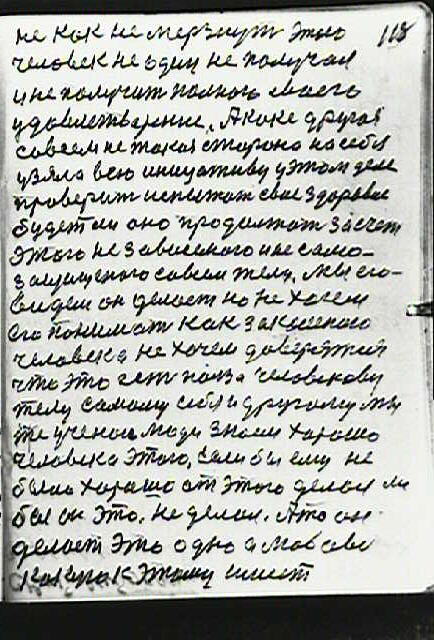 не как не мерзнут этого 118
человек не один не получал
и не получит полного своего
удовлетварение. А како другая
совсем не такая сторона на себя
узяла всю инициативу у этом деле
проверит испытат свое здоровье
будет ли оно продолжат за счет
этого независемого и не само-
защищеного совсем телу, мы его
видем он делает но не хочем
его понимат как закаленого
человека не хочем доверят
что это ест полза человекову
телу самому себя и другому мы
те ученаи люди знаем харашо
человека этого, если бы ему не
было харашо от этого делал ли
бы он это. Не делал. А то он
делает это одно
к этому